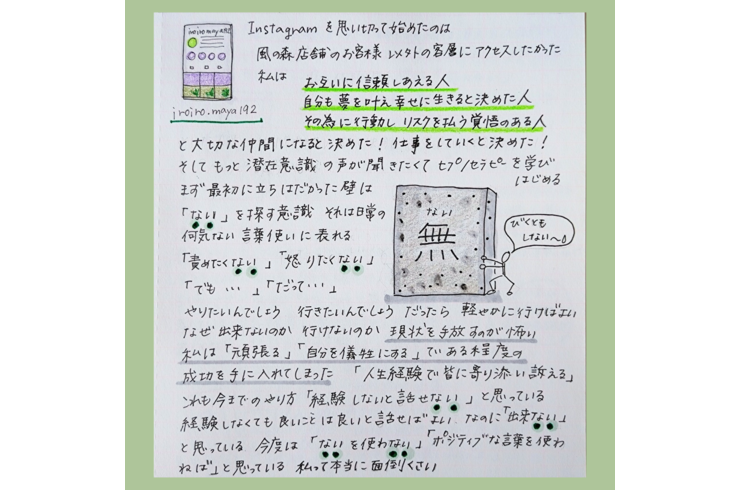 Instagram を思い切って始めたのは
風の森店舗のお客様 以外の客層に アクセスしたかった
私は お互いに信頼しあえる人
自分も夢を叶え幸せに生きると決めた人
その為に行動し リスクを払う覚悟のある人
iroiro.maya192
と大切な仲間になると決めた! 仕事をしていくと決めた!
そして もっと 潜在意識 の声が聞きたくて ヒプノセラピーを学び
はじめる
まず最初に立ちはだかった壁は
「ない」を探す意識 それは日常の
何気ない言葉使いに表れる
「責めたくない」「怒りたくない」
「でも・・・」「だって・・・」
ない
無
びくとも
しない〜
やりたいんでしょう 行きたいんでしょう だったら 軽やかに行けばよい
なぜ出来ないのか 行けないのか 現状を手放すのが怖い
私は「頑張る」「自分を犠牲にする」で ある程度の
成功を手に入れてしまった 「人生経験で皆に寄り添い訴える」
これも今までのやり方「経験しないと話せない」と思っている
経験しなくても良いことは良いと話せばよい なのに「出来ない」
と思っている 今度は「ないを使わない」「ポジティブな言葉を使わ
ねば」と思っている 私って本当に面倒くさい